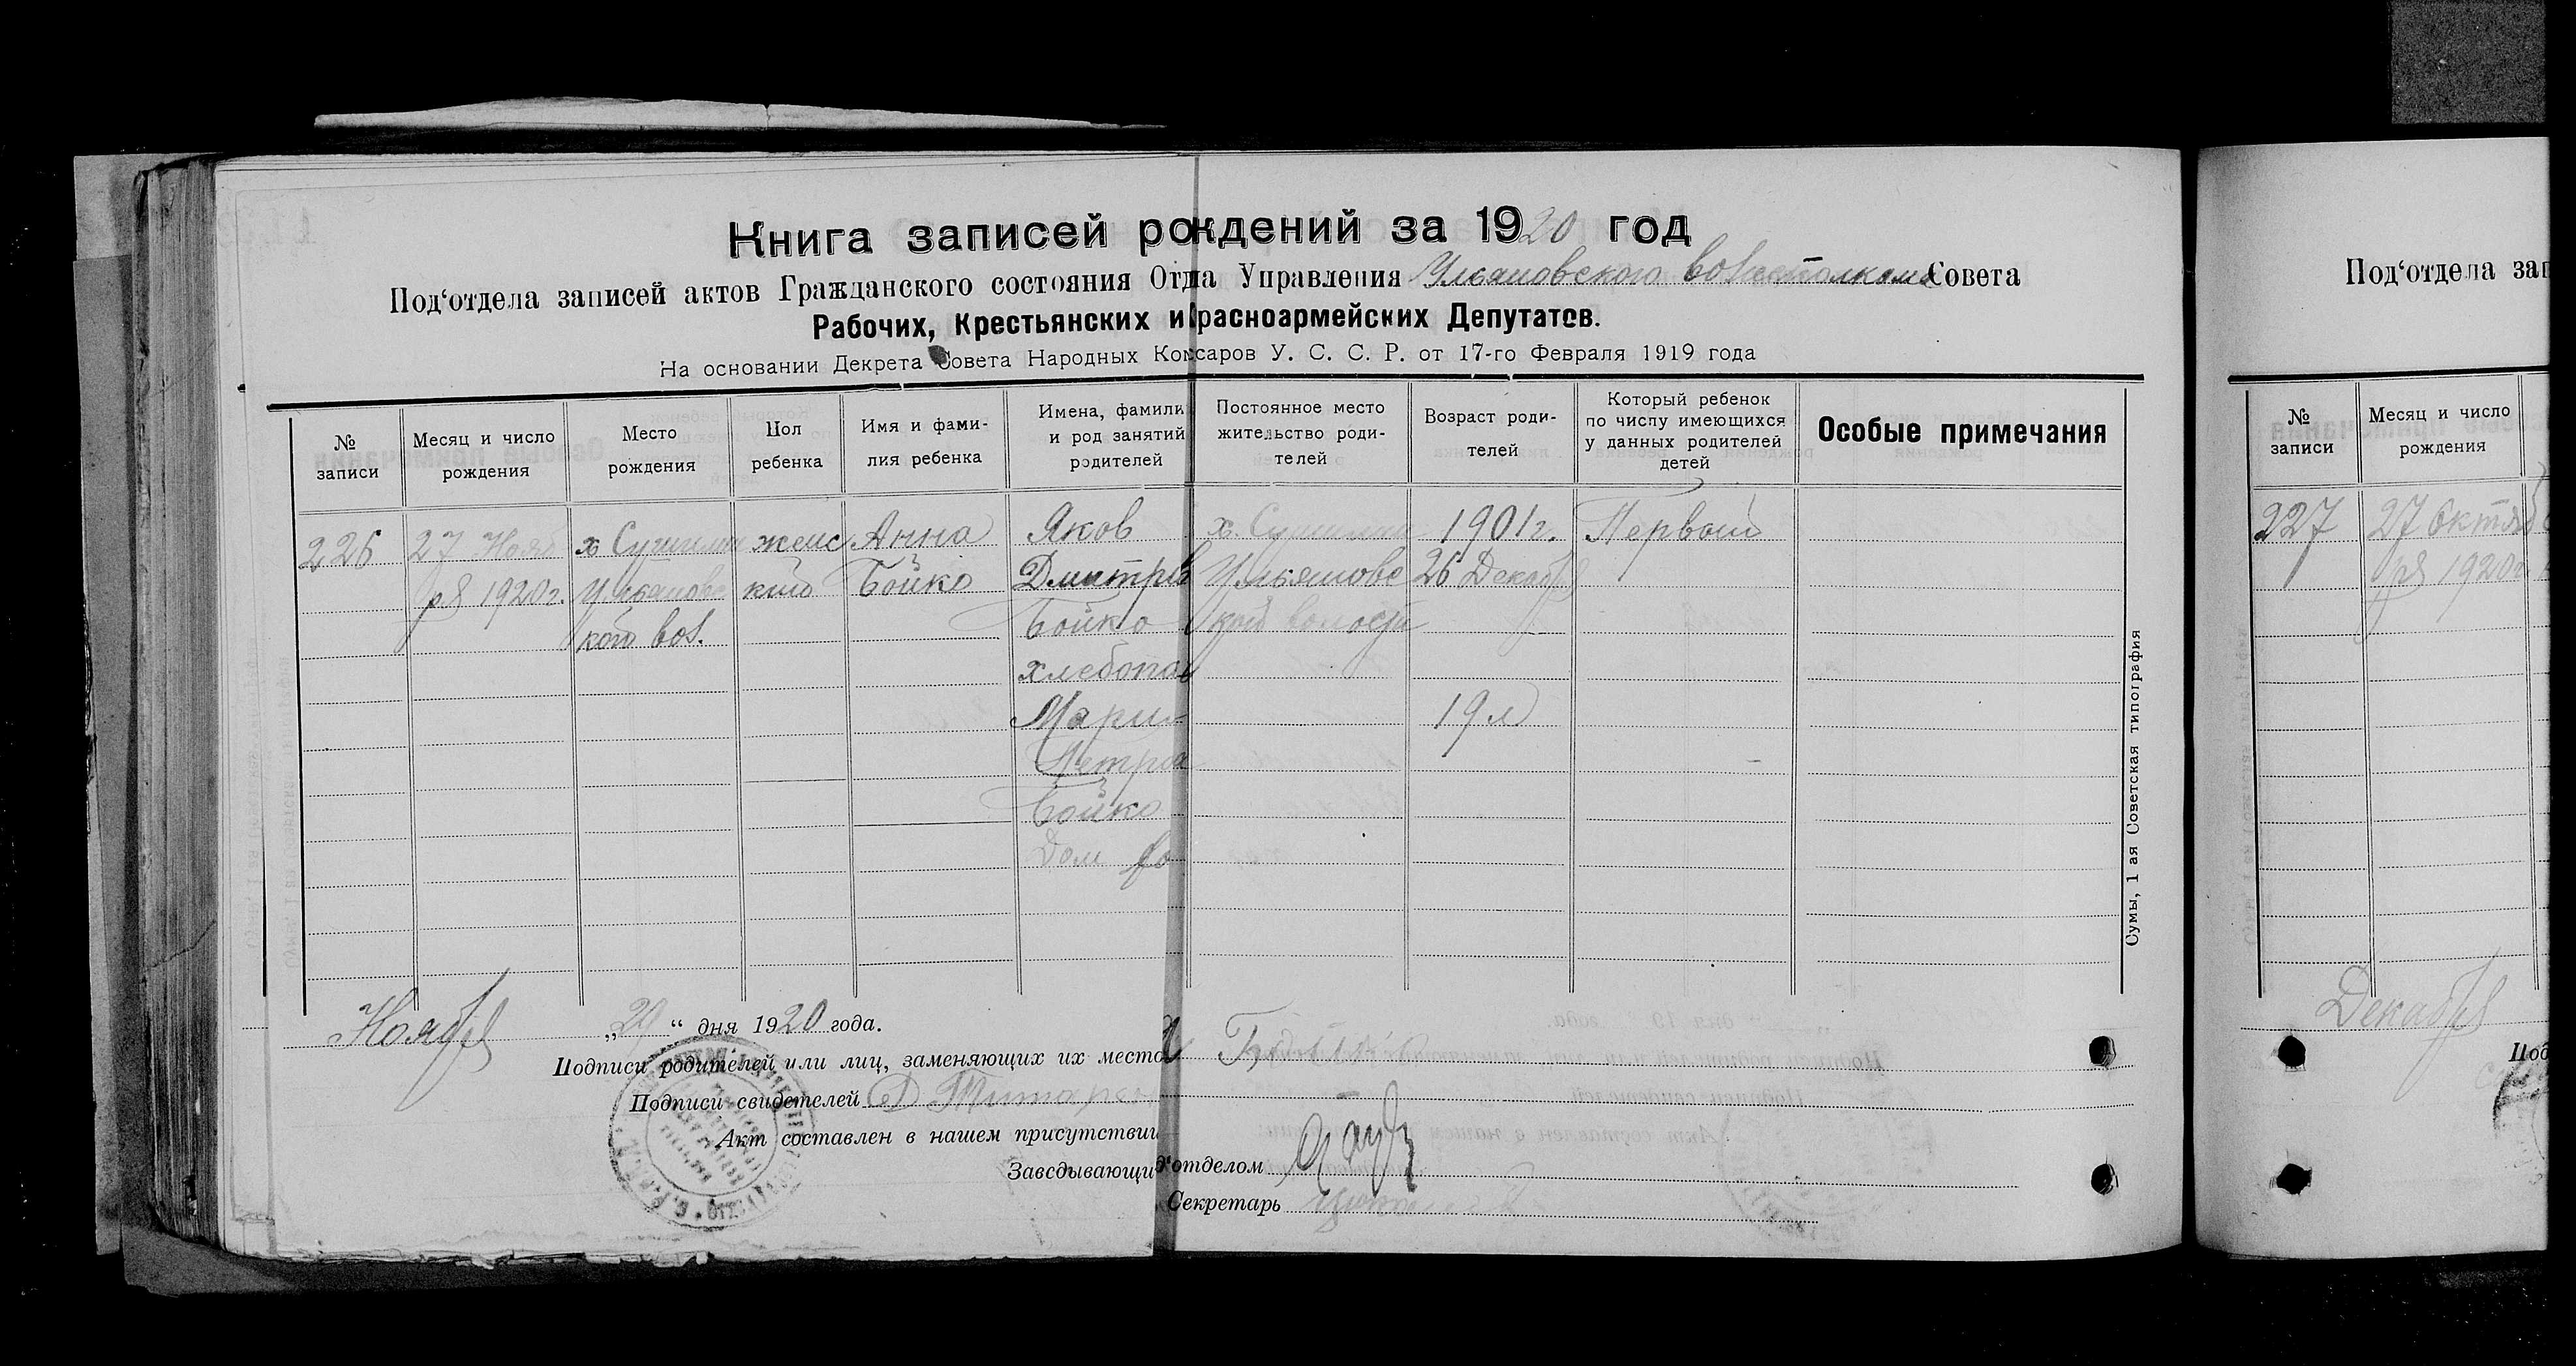 Книга записей рождений за 1920 год
Под‘отдела записей актов Гражданского состояния Отд а Управления Ульяновского волисполкома Совета
Рабочих, Крестьянских и расноармейских Депутатов.
На основании Декрета Совета Народных Комсаров У. С. С. Р. от 17-го Февраля 1919 года
№ записи
Месяц и число рождения
Место рождения
Пол ребенка
Имя и фами-
лия ребенка
Имена, фамили
и род занятий
родителей
Постоянное место
жительство роди-
телей
Возраст роди-
телей
Который ребенок
по числу имеющихся
у данных родителей
детей
Особые примечания
226
27 Нояб
ря 1920 г.
х.
Ульяновс
кой вол.
женс
кий
Анна
Бойко
Яков
Дмитрев
Бойко
хлебопаш
Мария
Петров
Бойко
Дом
х.
Ульяновс
кой волости
1901 г.
26 Декабр
19 л
Первый
Сумы, 1 ая Советская типография
Ноября „29“ дня 1920 года.
Подписи родителей или лиц, заменяющих их место
Подписи свидетелей
Акт составлен в нашем присутствии
Завсдывающи д‘отделом
Секретарь
Под‘отдела зап
№ записи
Месяц и число рождения
227
27 Октяб
ря 1920 г.
Декабря
Под